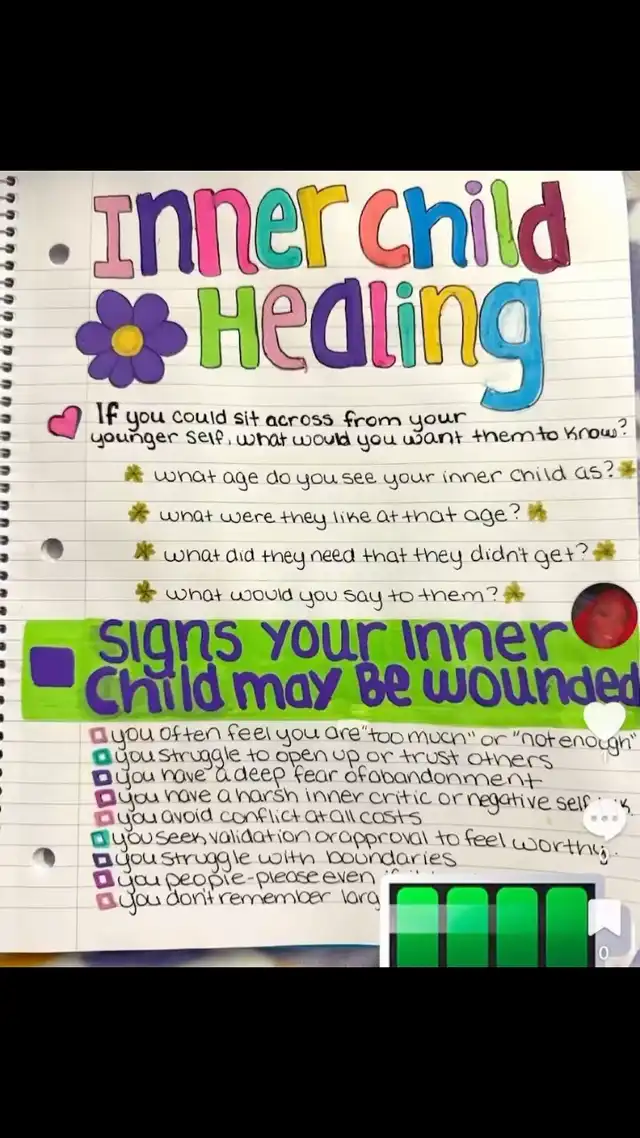 Inner child
Healing
If you could sit across from your
younger self, what would you want them to know?
what age do you see your inner child as?
what were they like at that age?
what did they need that they didn't get?
what would you say to them?
Signs your inner
child may be wounded
you often feel you are "too much" or "not enough"
you struggle to open up or trust others
you have a deep fear of abandonment
you have a harsh inner critic or negative self
you avoid conflict at all costs
you seek validation or approval to feel worthy
you struggle with boundaries
you people-please even
you don't remember
0